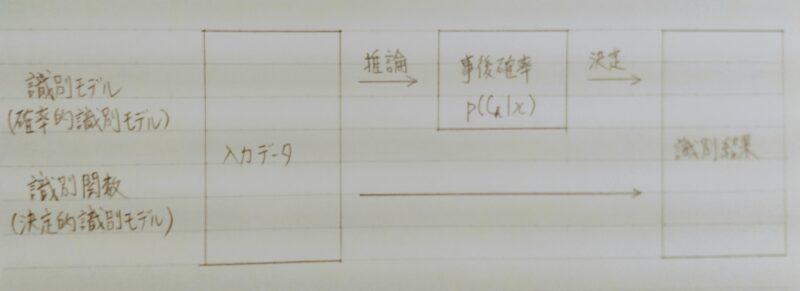 識別モデル
(確率的識別モデル)
入力データ
推論
事後確率
p(Ck|x)
決定
識別結果
識別関数
(決定的識別モデル)